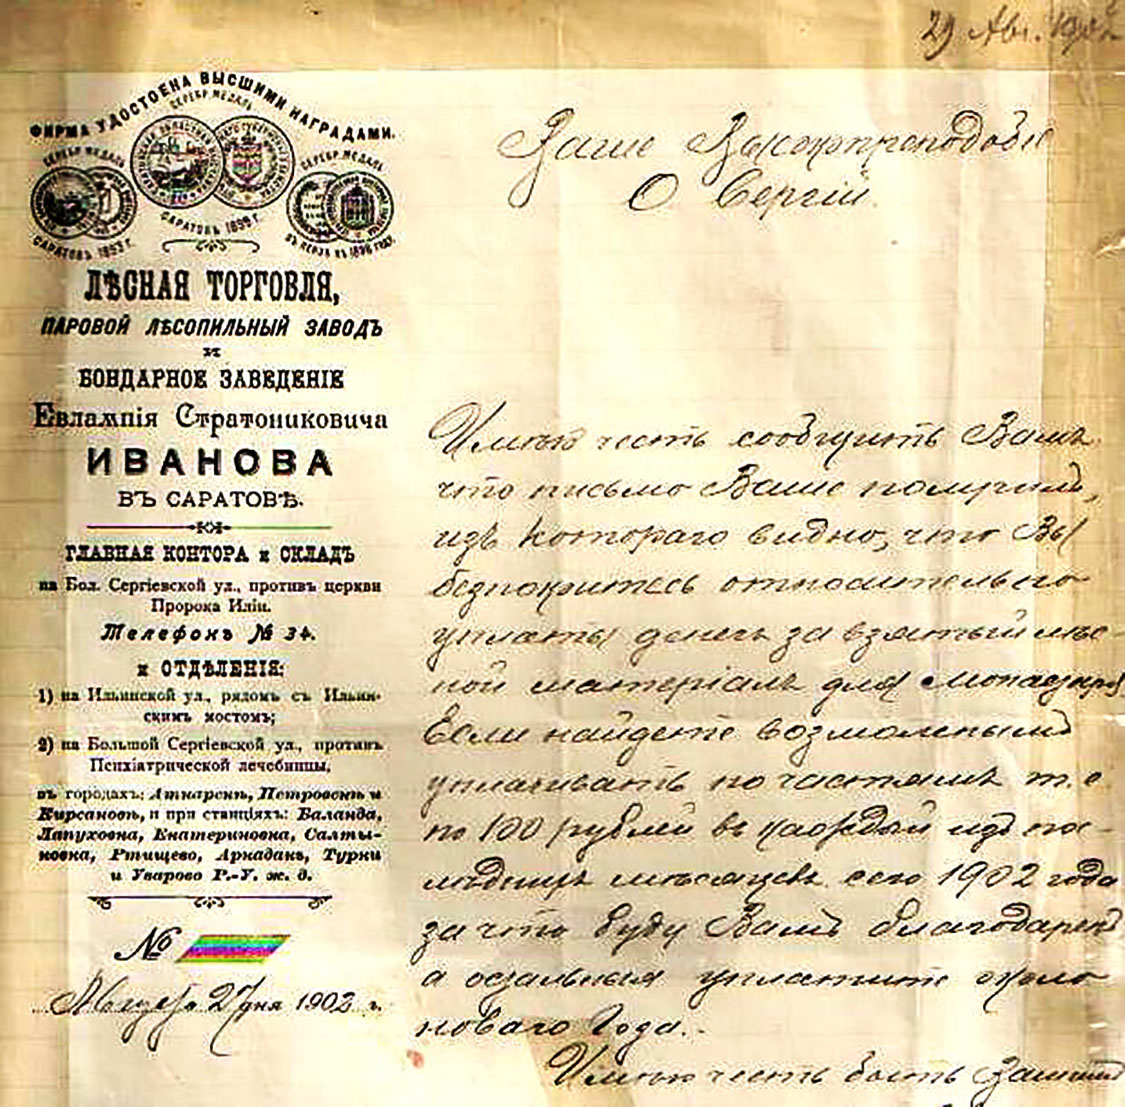 29 Авг. 1902
ФИРМА УДОСТОЕНА ВЫСШИМИ НАГРАДАМИ.
СЕРЕБР МЕДАЛЬ
СЕРЕБР МЕДАЛЬ
СЕРЕБР МЕДАЛЬ
САРАТОВЪ 1893 г.
САРАТОВЪ 1899 г.
ВЪ ПЕНЗѢ ВЪ 1896 ГОДУ.
ЛѢСНАЯ ТОРГОВЛЯ,
ПАРОВОЙ ЛѢСОПИЛЬНЫЙ ЗАВОДЪ
и
БОНДАРНОЕ ЗАВЕДЕНІЕ
Евлампія Стратониковича
ИВАНОВА
ВЪ САРАТОВѢ.
ГЛАВНАЯ КОНТОРА и СКЛАДЪ
на Бол. Сергіевской ул., противъ церкви
Пророка Иліи.
Телефонъ № 34.
и ОТДѢЛЕНІЯ:
1) на Ильинской ул., рядомъ съ Ильин-
скимъ мостомъ;
2) на Большой Сергіевской ул., противъ
Психіатрической лечебницы,
въ городахъ: Аткарскѣ, Петровскѣ и
Кирсановѣ, и при станціяхъ: Баланда,
Лапуховка, Екатериновка, Салты-
ковка, Ртищево, Аркадакъ, Турки
и Уварово Р.-У. ж. д.
№
Августа 27 дня 1902 г.
Ваше Высокопреподобіе
О Сергій.
Имѣю честь сообщить Вамъ
что письмо Ваше получилъ,
изъ котораго видно, что Вы
безпокоитесь относительно
уплаты денегъ за взятый лѣс-
ной матеріалъ для монастыря
Если найдете возможнымъ
уплачивать по частямъ т. е.
по 100 рублей въ каждый изъ по-
слѣднихъ мѣсяцевъ сего 1902 года
за что буду Вамъ благодаренъ
а остальныя уплатите около
новаго Года.
Имѣю честь быть Вашимъ